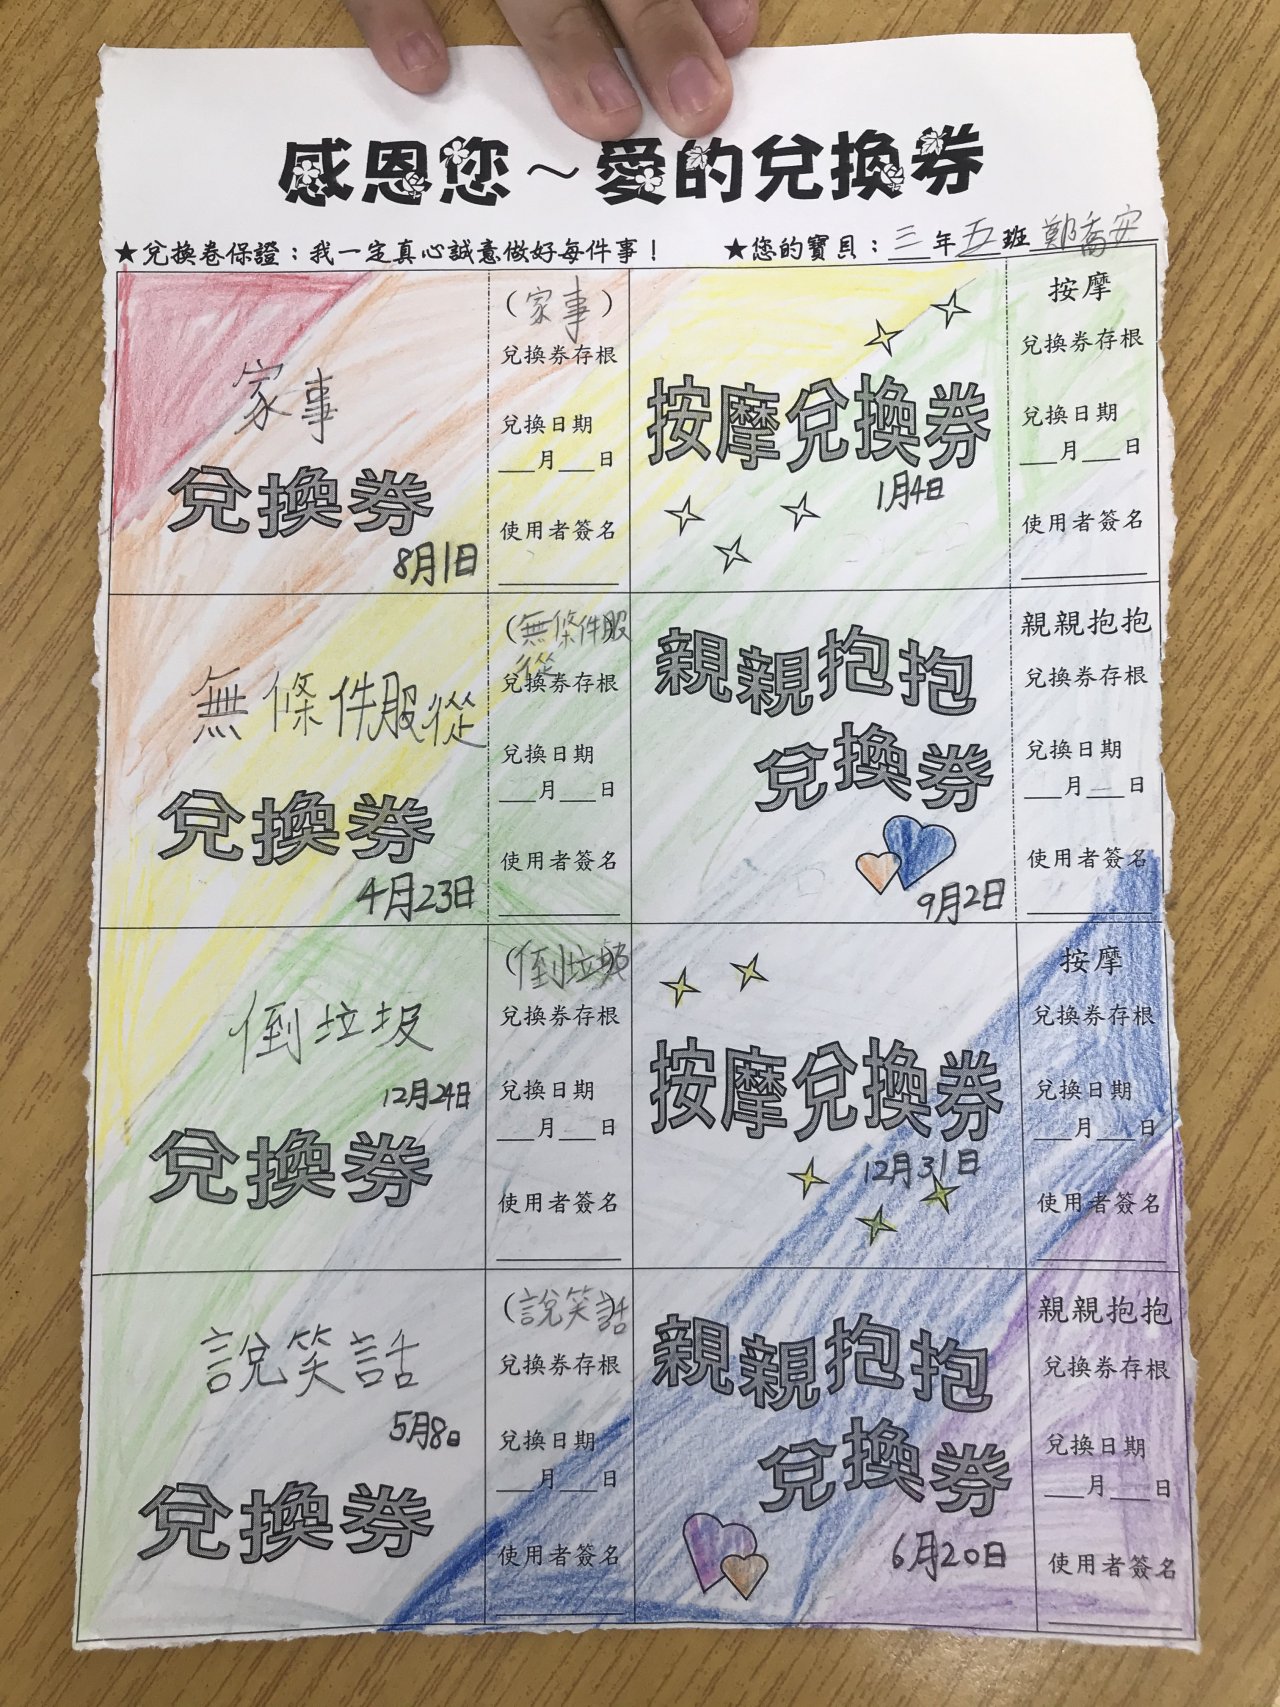 感恩您～愛的兌換券
★兌換卷保證：我一定真心誠意做好每件事！
★您的寶貝：三年五班鄭喬安
家事
兌換券
8月1日
（家事）
兌換券存根
兌換日期
＿月＿日
使用者簽名
按摩兌換券
1月4日
按摩
兌換券存根
兌換日期
＿月＿日
使用者簽名
無條件服從
兌換券
4月23日
（無條件服
從
兌換券存根
兌換日期
＿月＿日
使用者簽名
親親抱抱
兌換券
9月2日
親親抱抱
兌換券存根
兌換日期
＿月＿日
使用者簽名
倒垃圾
12月24日
兌換券
（倒垃圾
兌換券存根
兌換日期
＿月＿日
使用者簽名
按摩兌換券
12月31日
按摩
兌換券存根
兌換日期
＿月＿日
使用者簽名
說笑話
5月8日
兌換券
（說笑話
兌換券存根
兌換日期
＿月＿日
使用者簽名
親親抱抱
兌換券
6月20日
親親抱抱
兌換券存根
兌換日期
＿月＿日
使用者簽名